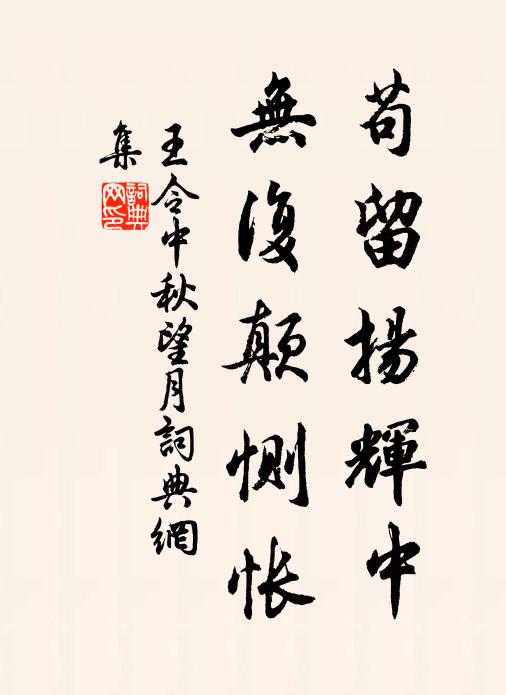 苟留揚輝中
無復顛惻悵
王令中秋望月詞典網
集
詞典
网印